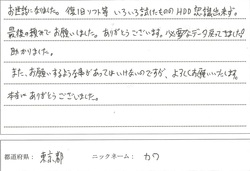 お世話になりました。復旧ソフト等いろいろ試したもののHDD認識出来ず。
最後の頼みでお願いしました。ありがとうございます。必要なデータ戻ってきました!
助かりました。
また、お願いするような事があってはいけないのですが、よろしくお願いいたします。
本当にありがとうございました。
都道府県: 東京都 ニックネーム: カワ